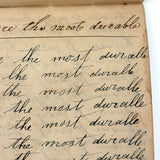 ce the most durable
the most duralle
the most duralle
the most duralle
the most duralle
the most duralle
the most duralle